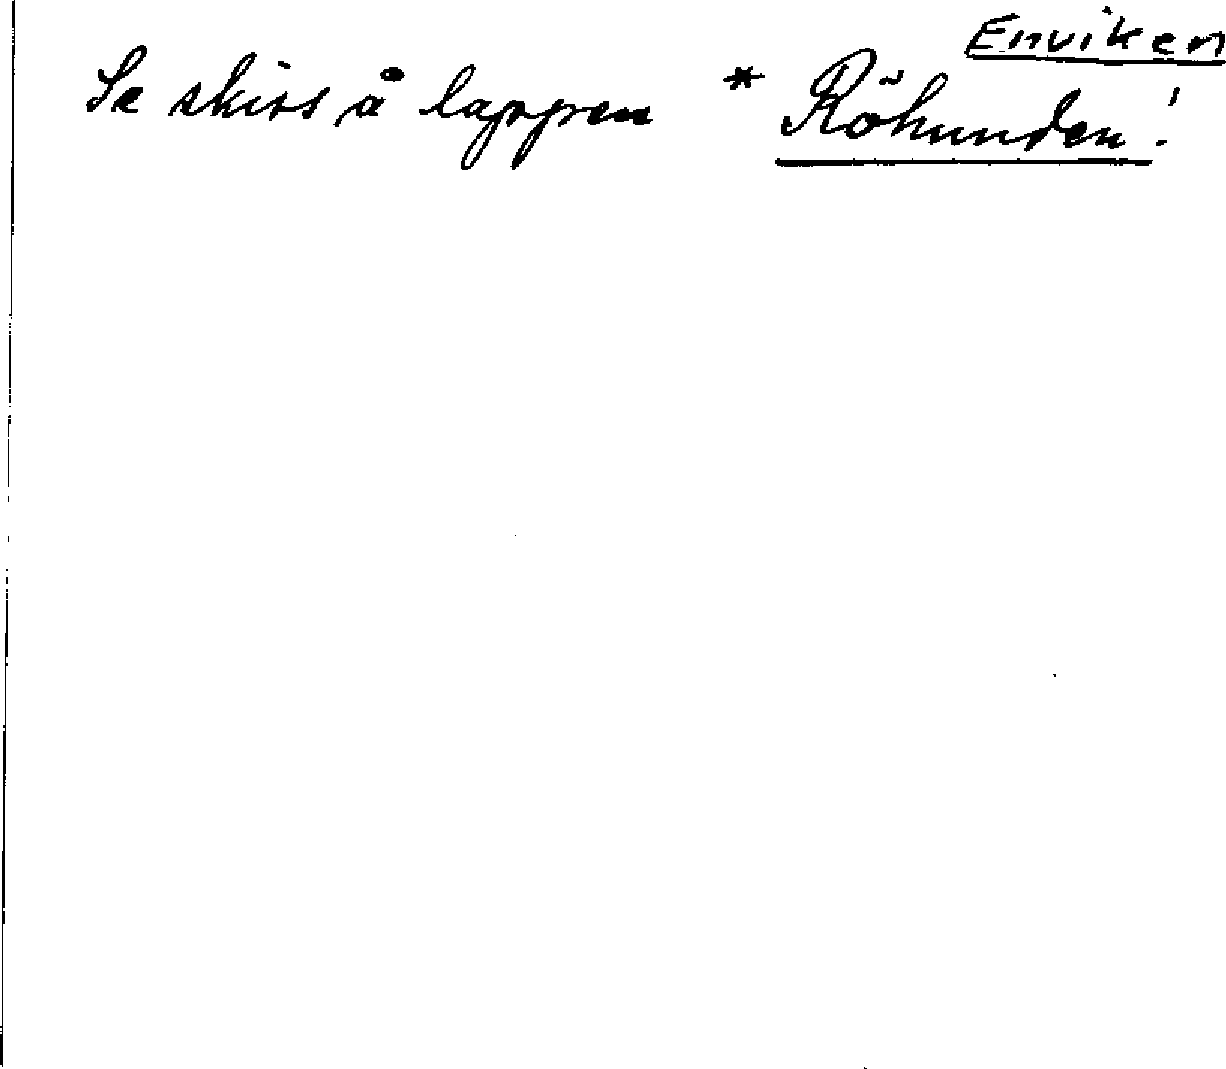 Enviken
Se skiss å lappen * Röhunden!